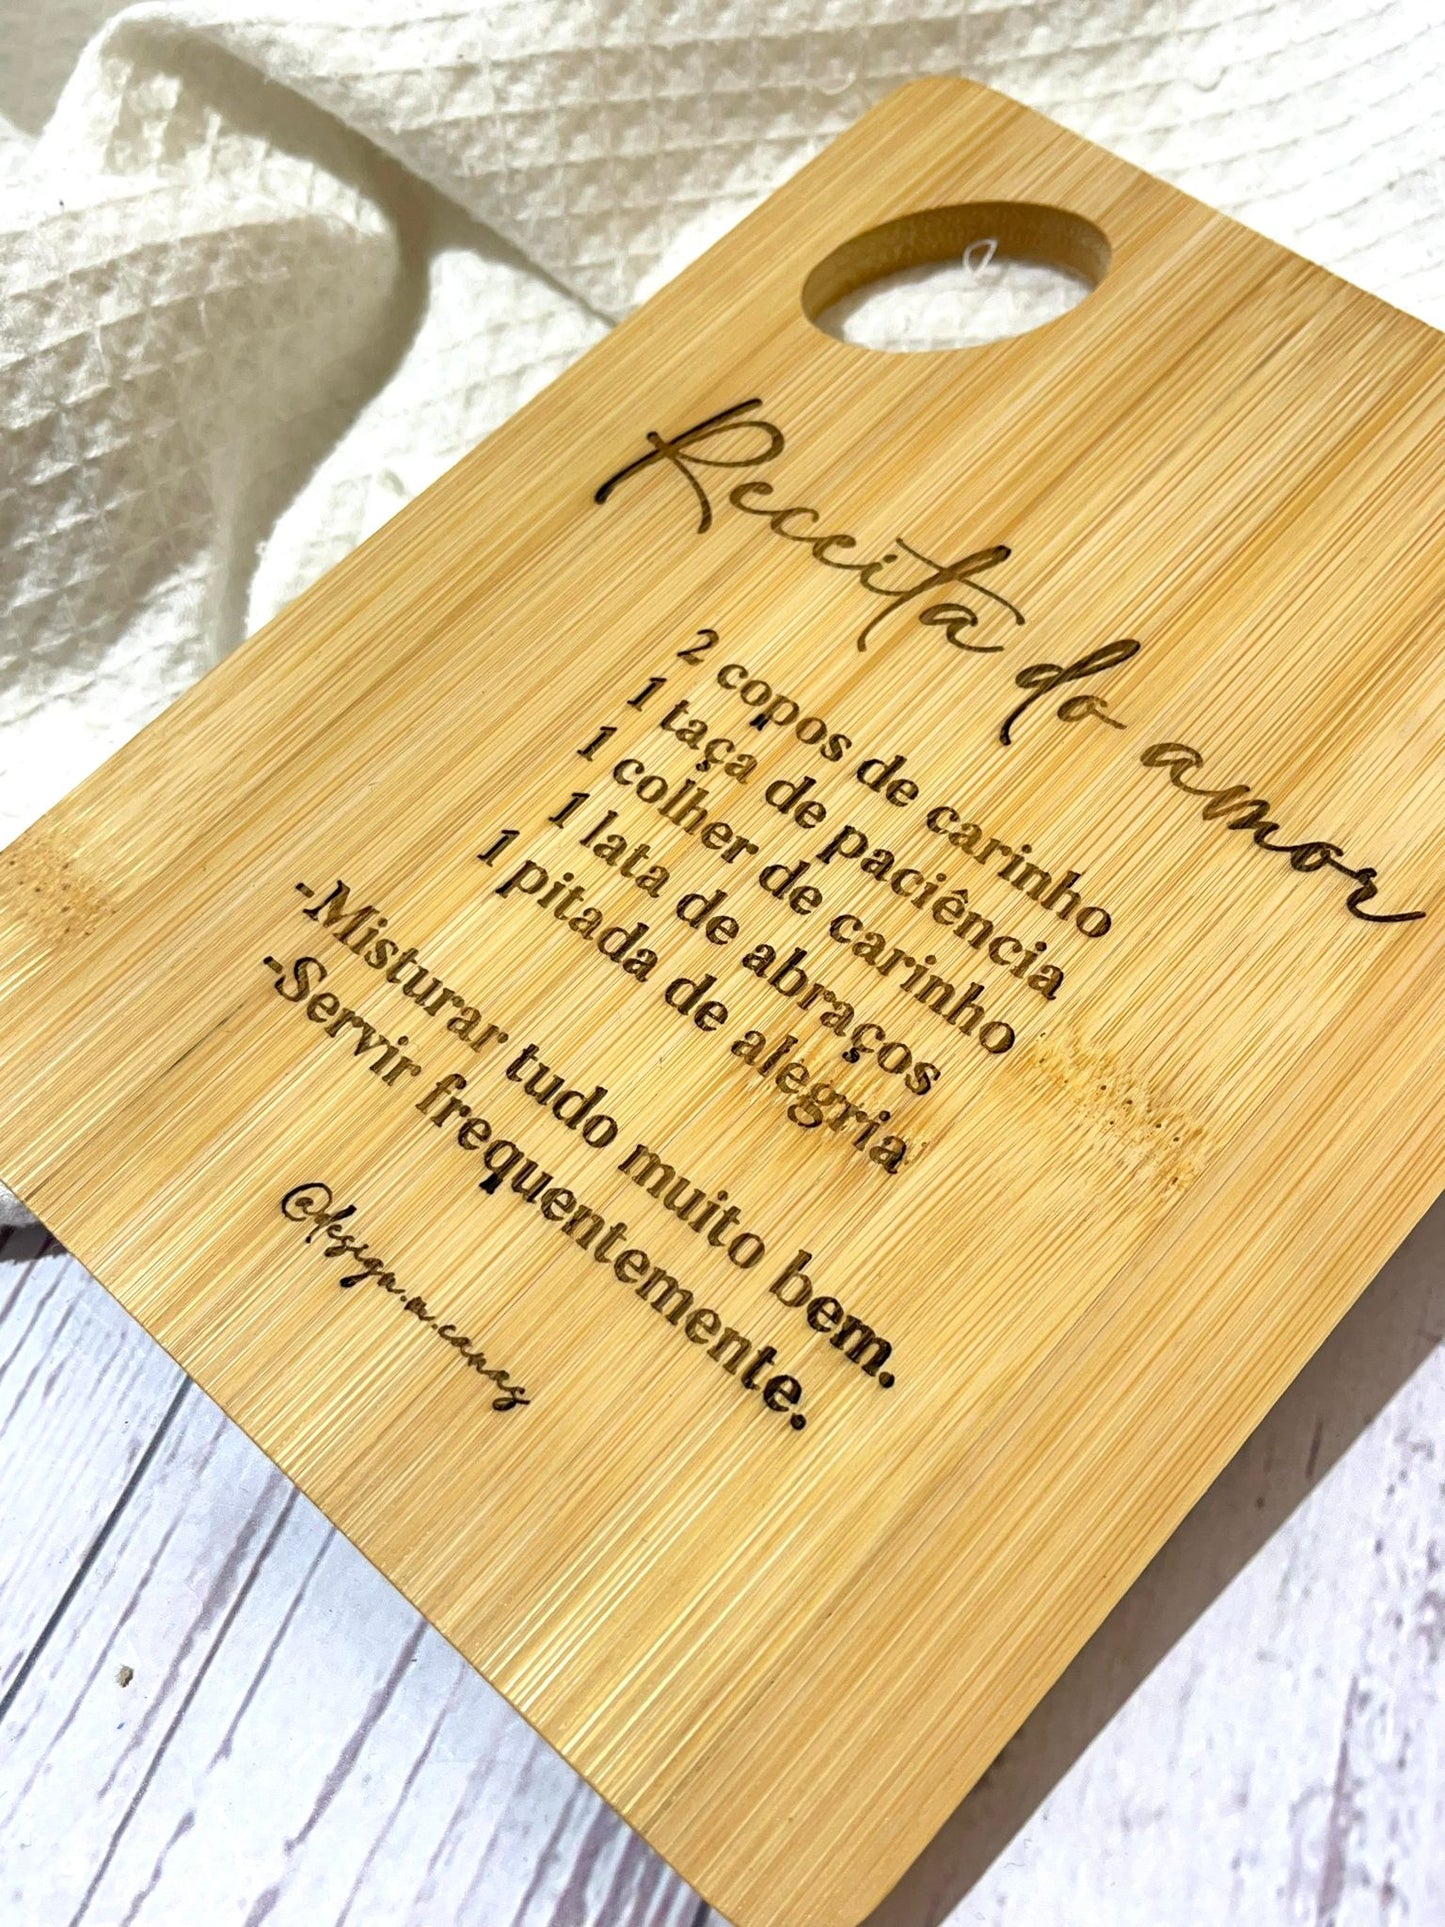 Receita do amor
2 copos de carinho
1 taça de paciência
1 colher de carinho
1 lata de abraços
1 pitada de alegria
-Misturar tudo muito bem.
-Servir frequentemente.
@design.a.canas